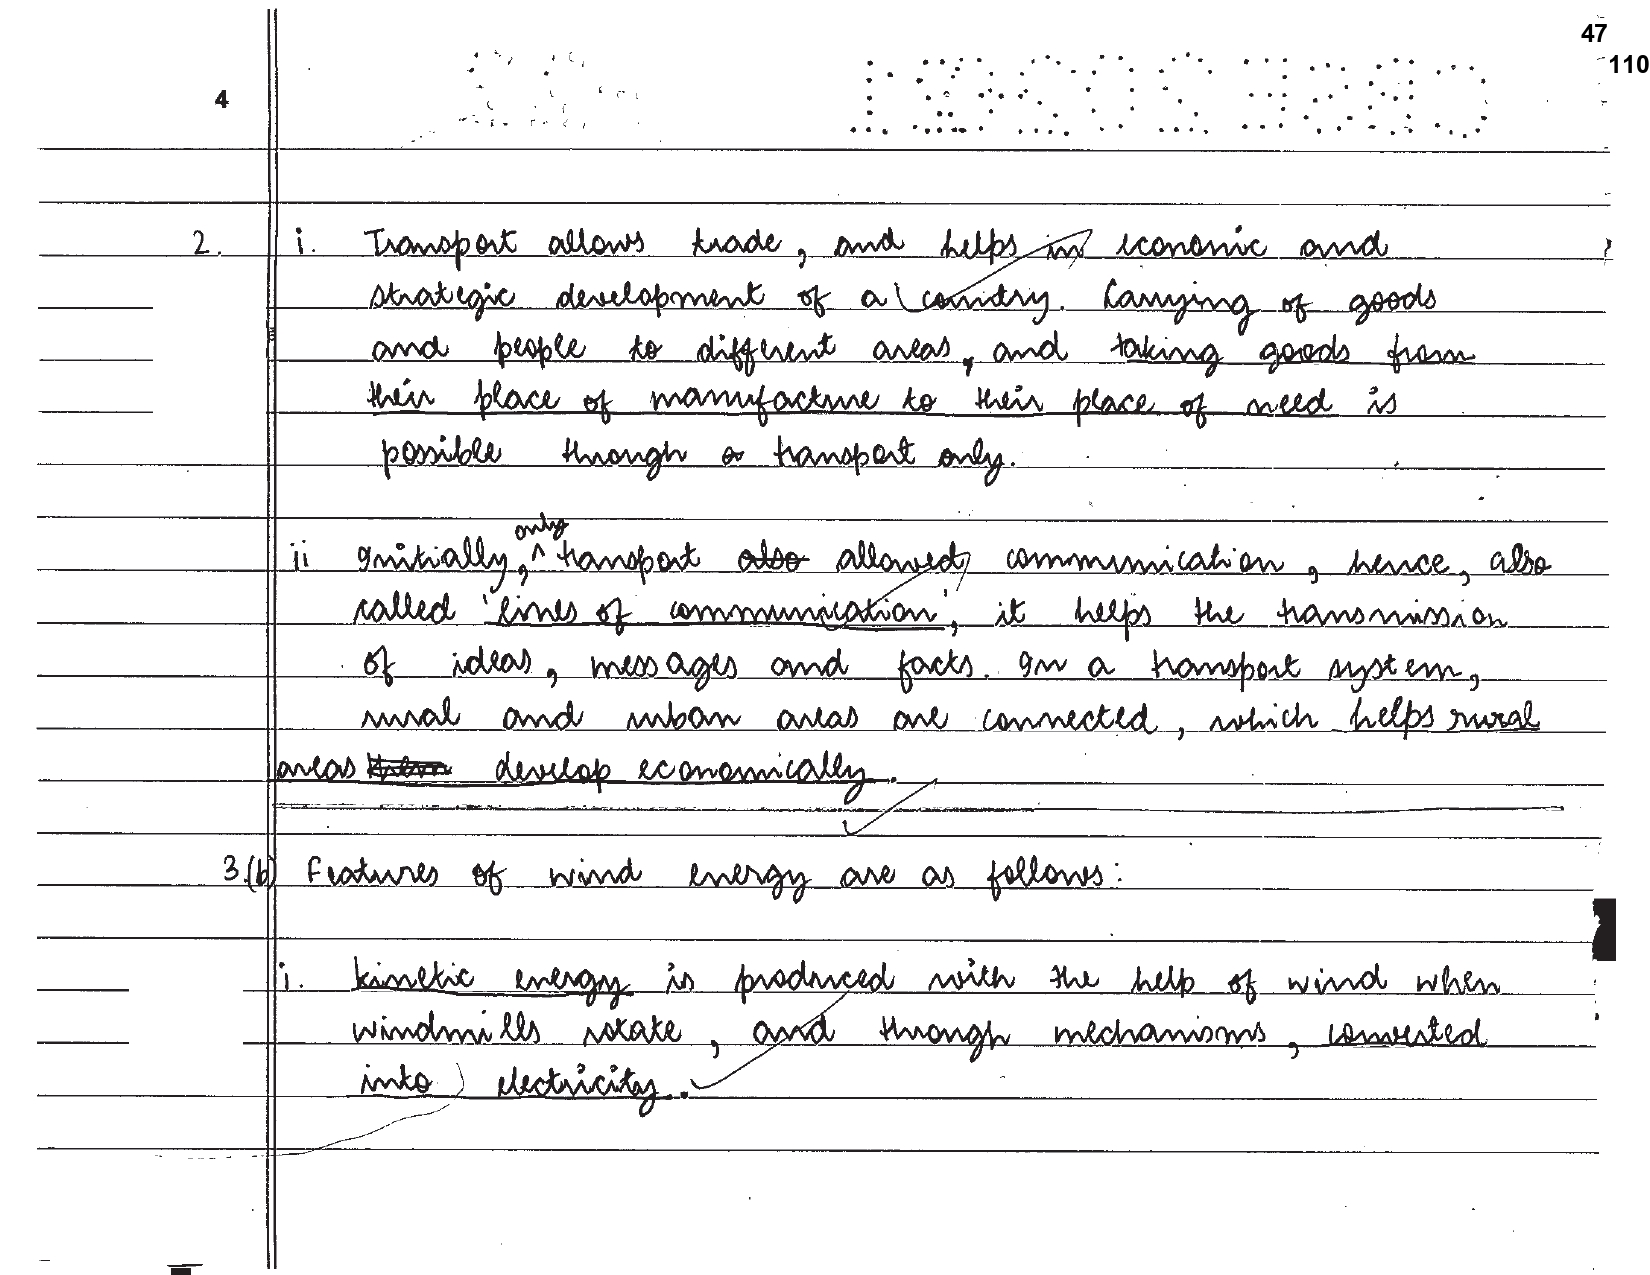 47
110
4
2. i. Transport allows trade, and helps in economic and
strategic development of a country. Carrying of goods
and people to different areas, and taking goods from
their place of manufacture to their place of need is
possible through a transport only.
only
ii Initially, ^ transport also allowed communication, hence, also
called 'lines of communication', it helps the transmission
of ideas, messages and facts. In a transport system,
rural and urban areas are connected, which helps rural
areas them develop economically.
3.(b) Features of wind energy are as follows:
i. kinetic energy is produced with the help of wind when
windmills rotate, and through mechanisms, converted
into electricity.